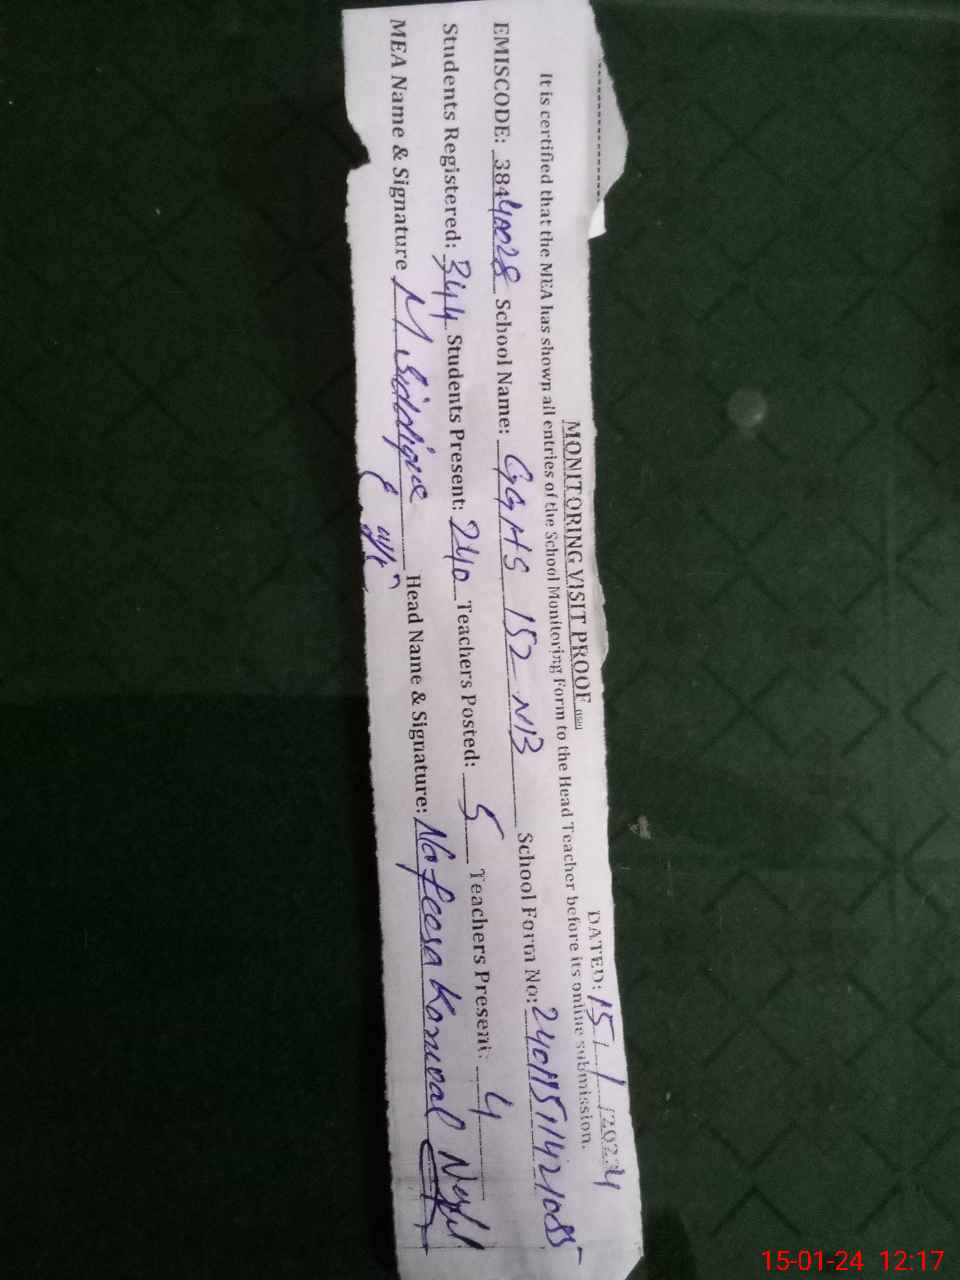 MONITORING VISIT PROOF
DATED: 15/1/2024
It is certified that the MEA has shown all entries of the School Monitoring Form to the Head Teacher before its online submission.
EMISCODE: 38440028 School Name: GGHS 152 NB School Form No:
Students Registered: 344 Students Present: 240 Teachers Posted: 5 Teachers Present: 4
MEA Name & Signature M Siddique Head Name & Signature: Nafeesa Kanwal
15-01-24 12:17